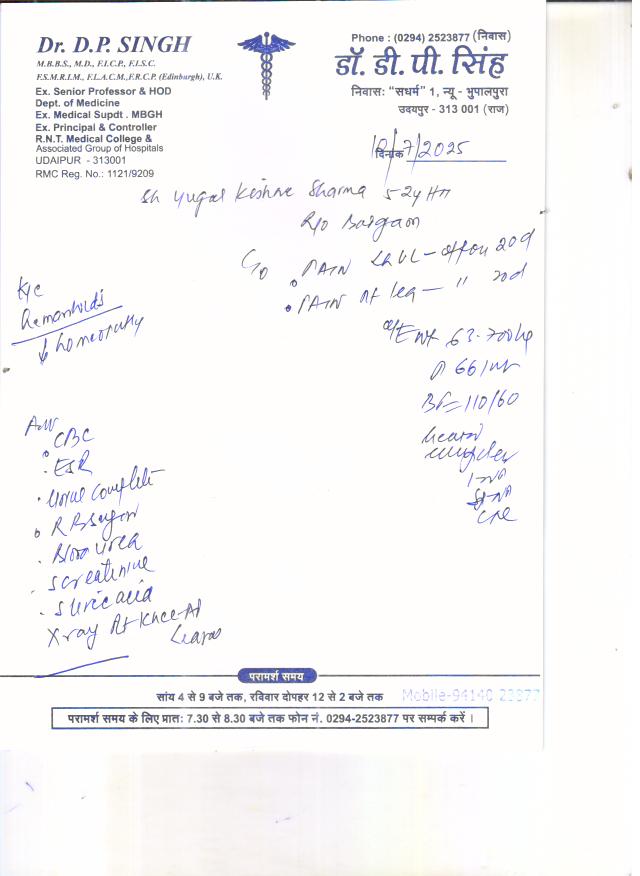 Dr. D.P. SINGH
M.B.B.S., M.D., F.I.C.P., F.I.S.C.
F.S.M.R.I.M., F.L.A.C.M.,F.R.C.P. (Edinburgh), U.K.
Ex. Senior Professor & HOD
Dept. of Medicine
Ex. Medical Supdt . MBGH
Ex. Principal & Controller
R.N.T. Medical College &
Associated Group of Hospitals
UDAIPUR - 313001
RMC Reg. No.: 1121/9209
Phone : (0294) 2523877 (निवास)
डॉ. डी. पी. सिंह
निवासः "सधर्म" 1, न्यू - भुपालपुरा
उदयपुर - 313 001 (राज)
दिनांक /7/2025
Sh Yugal Kishore Sharma 52y
R/o Bargaon
C/o PAIN 20d
PAIN Rt leg — " 20d
K/c
Hemorrhoids
↓ homeopathy
O/E Wt 63.700kg
P 66/
BP= 110/60
CBC
ESR
Urine Complete
R B Sugar
Blood Urea
S creatinine
S Uric acid
X ray Rt Knee AP
परामर्श समय
सांय 4 से 9 बजे तक, रविवार दोपहर 12 से 2 बजे तक
Mobile-94140
परामर्श समय के लिए प्रातः 7.30 से 8.30 बजे तक फोन नं. 0294-2523877 पर सम्पर्क करें ।